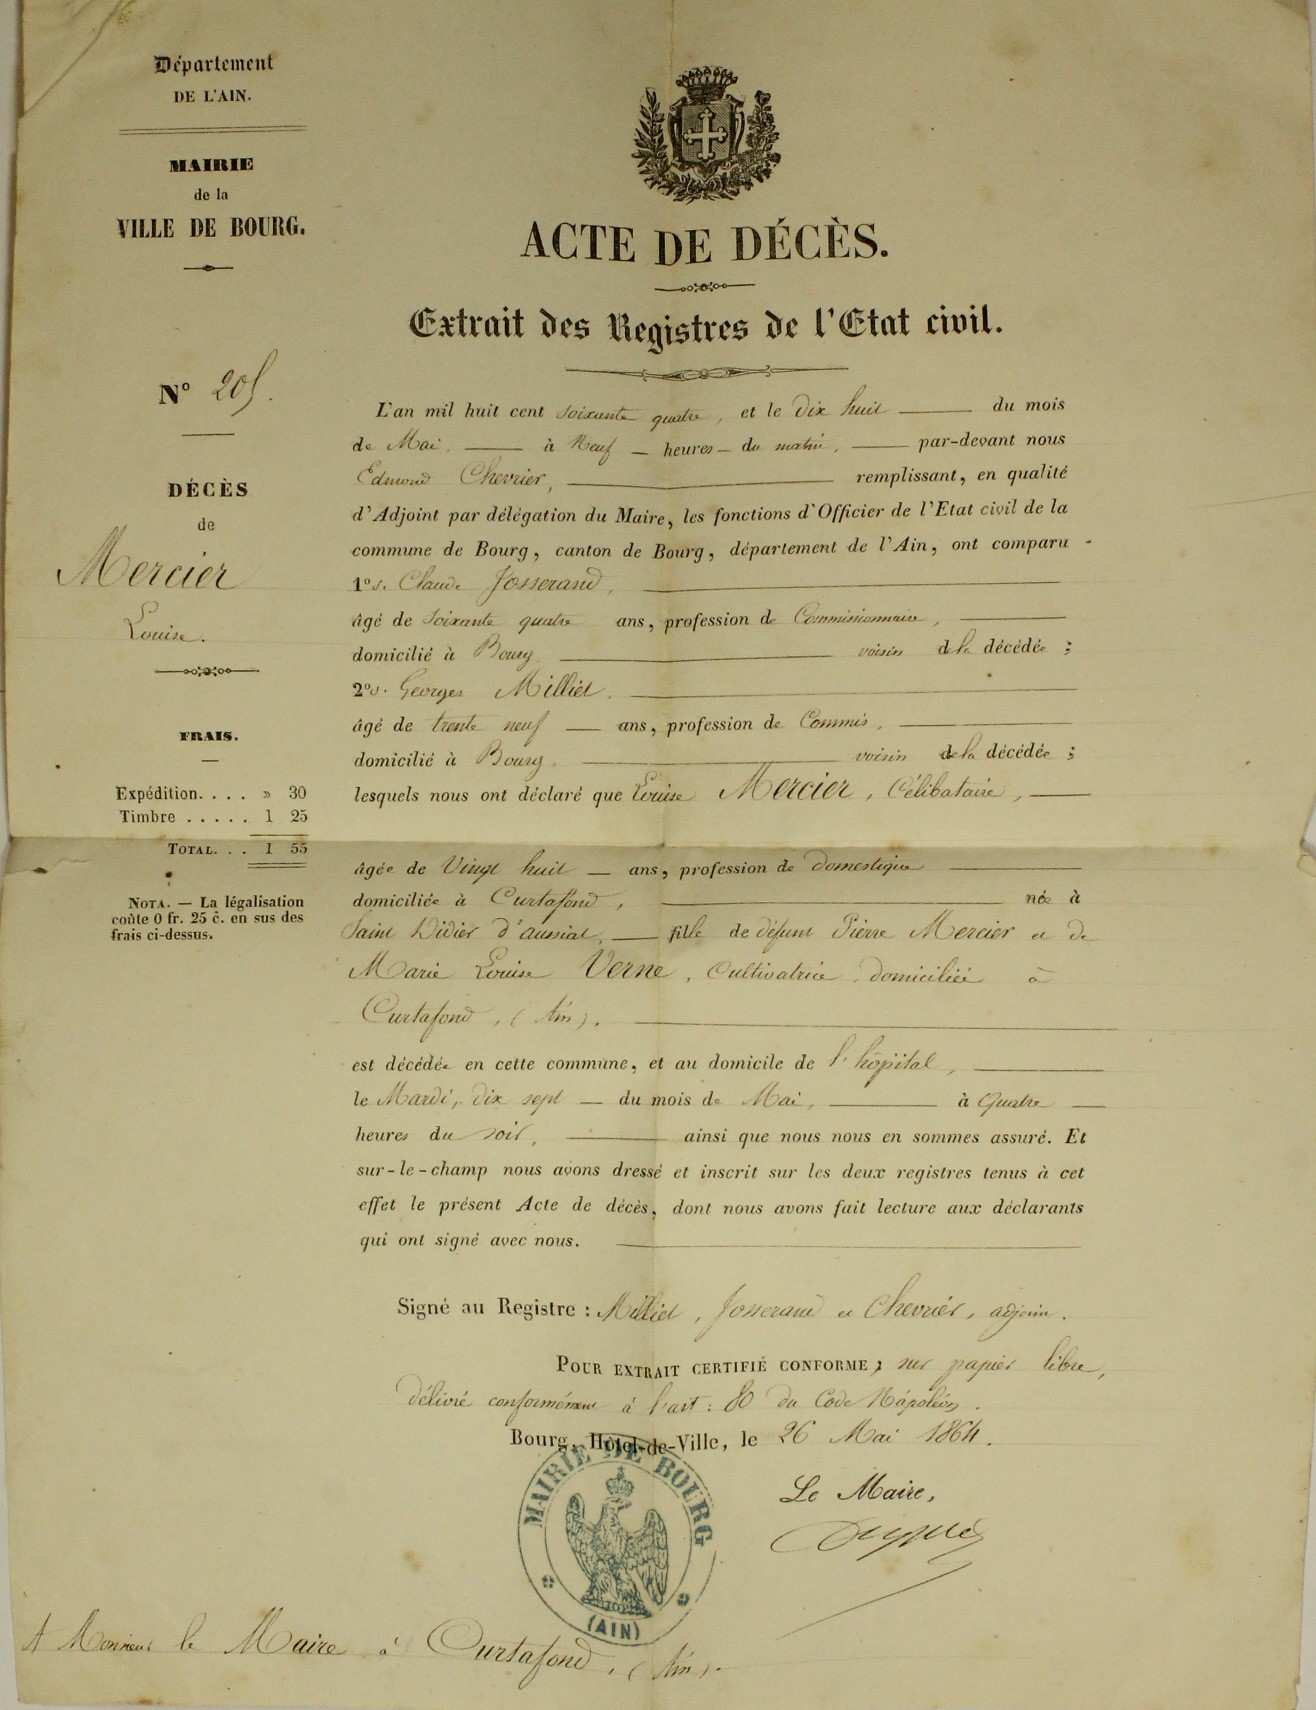 Département
DE L'AIN.
MAIRIE
de la
VILLE DE BOURG.
ACTE DE DÉCÈS.
Extrait des Registres de l'Etat civil.
N° 205.
DÉCÈS
de
Mercier
Louise.
FRAIS.
Expédition. . . . » 30
Timbre . . . . . 1 25
TOTAL. . . 1 55
NOTA. — La légalisation
coûte 0 fr. 25 c. en sus des
frais ci-dessus.
L'an mil huit cent soixante quatre, et le dix huit du mois
de Mai, à Neuf heures du matin, par-devant nous
Edmond Chevrier, remplissant, en qualité
d'Adjoint par délégation du Maire, les fonctions d'Officier de l'Etat civil de la
commune de Bourg, canton de Bourg, département de l'Ain, ont comparu
1os. Claude Josserand,
âgé de soixante quatre ans, profession de Commissionnaire,
domicilié à Bourg, voisin de la décédée ;
2os. Georges Milliet,
âgé de trente neuf ans, profession de Commis,
domicilié à Bourg, voisin de la décédée ;
lesquels nous ont déclaré que Louise Mercier, Célibataire,
âgée de Vingt huit ans, profession de domestique
domiciliée à Curtafond, née à
Saint Didier d'aussiat, fille de défunt Pierre Mercier et de
Marie Louise Verne, Cultivatrice, domiciliée à
Curtafond, (Ain).
est décédée en cette commune, et au domicile de l'hôpital,
le Mardi, dix sept du mois de Mai, à quatre
heures du soir, ainsi que nous nous en sommes assuré. Et
sur-le-champ nous avons dressé et inscrit sur les deux registres tenus à cet
effet le présent Acte de décès, dont nous avons fait lecture aux déclarants
qui ont signé avec nous.
Signé au Registre : Milliet, Josserand et Chevrier, adjoin.
POUR EXTRAIT CERTIFIÉ CONFORME, sur papier libre,
délivré conformément à l'art : 80 du Code Napoléon.
Bourg, Hôtel-de-Ville, le 26 Mai 1864.
Le Maire,
MAIRIE DE BOURG
(AIN)
A Monsieur le Maire à Curtafond, (Ain).